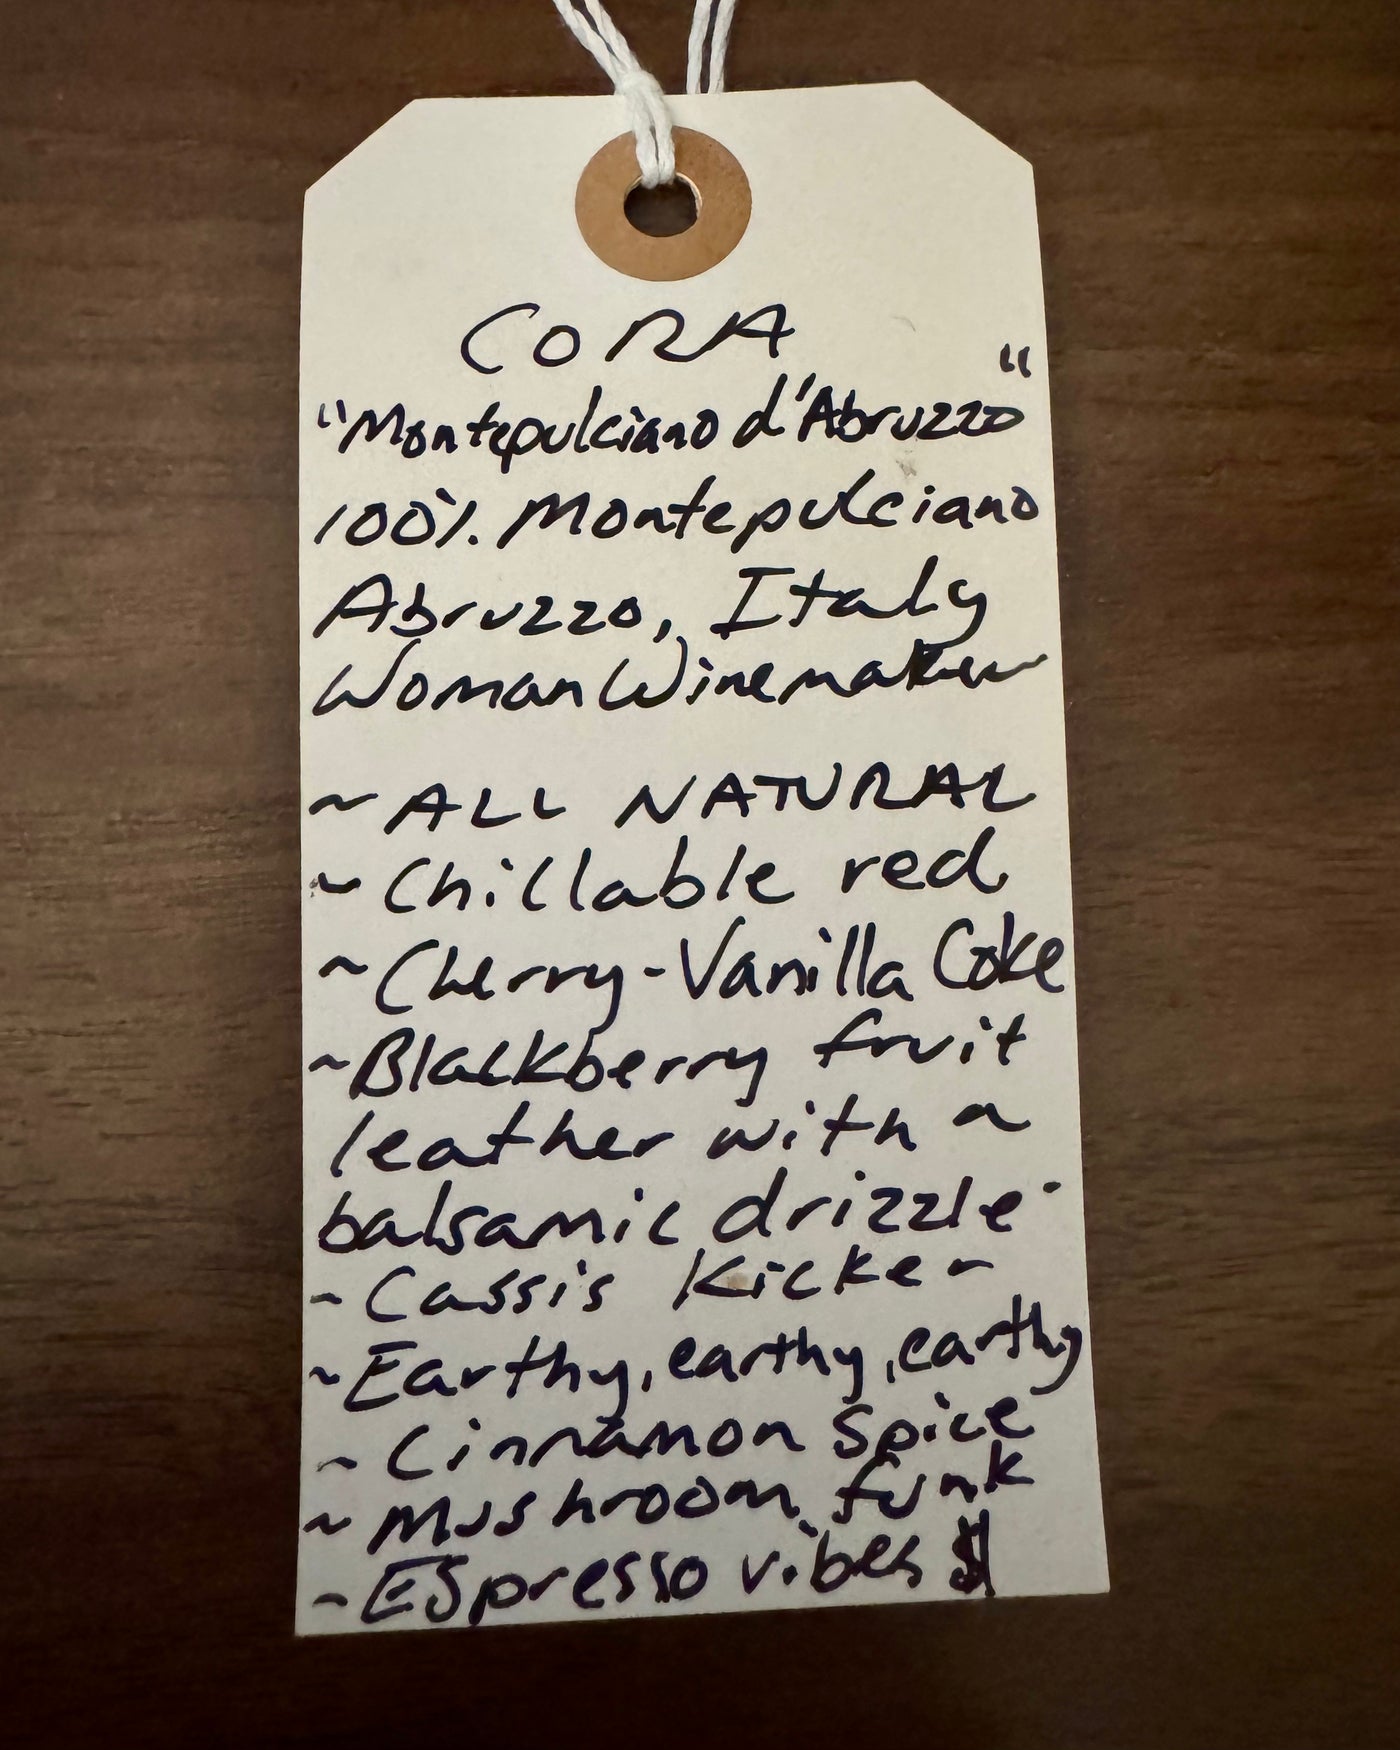 CORA
"Montepulciano d'Abruzzo"
100% Montepulciano
Abruzzo, Italy
Woman Winemaker
~ ALL NATURAL
~ Chillable red
~ Cherry-Vanilla Coke
~ Blackberry fruit
leather with a
balsamic drizzle
~ Cassis Kicker
~ Earthy, earthy, earthy
~ Cinnamon Spice
~ Mushroom funk
~ Espresso vibes $